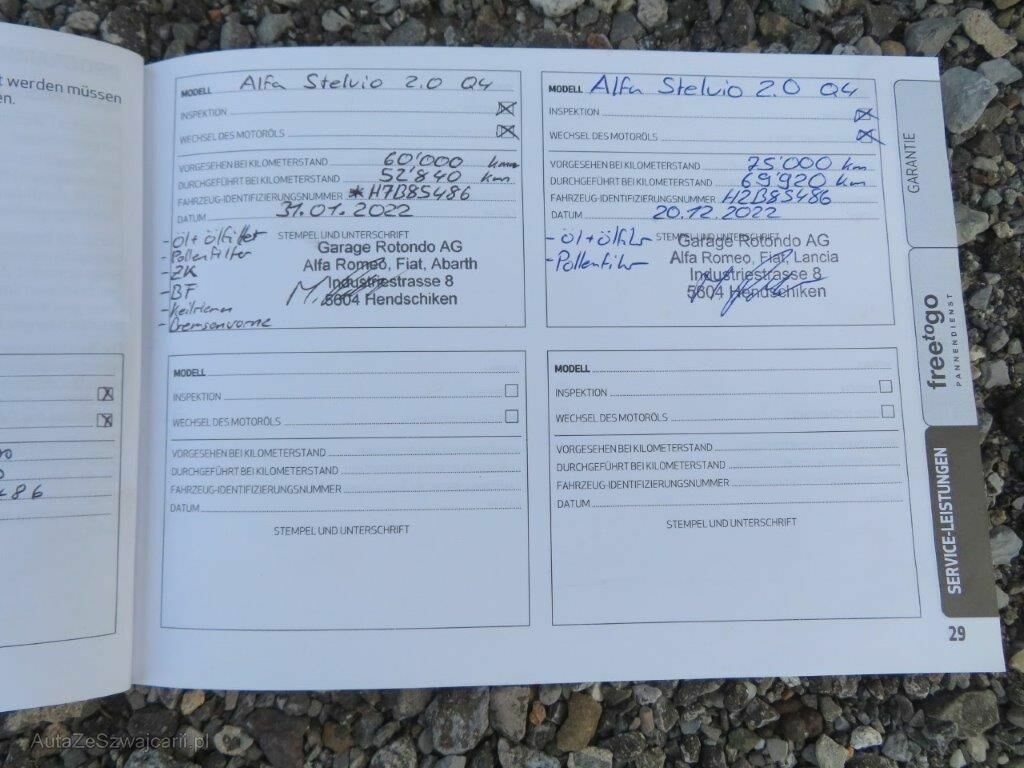 t werden müssen
en.
MODELL Alfa Stelvio 2.0 Q4
INSPEKTION
WECHSEL DES MOTORÖLS
VORGESEHEN BEI KILOMETERSTAND 60'000 km
DURCHGEFÜHRT BEI KILOMETERSTAND 52'840 km
FAHRZEUG-IDENTIFIZIERUNGSNUMMER *H7B85486
DATUM 31.01.2022
STEMPEL UND UNTERSCHRIFT
- Öl + Ölfilter
- Pollenfilter
- ZK
- BF
- Keilriemen
- Bremsen vorne
Garage Rotondo AG
Alfa Romeo, Fiat, Abarth
Industriestrasse 8
5604 Hendschiken
MODELL Alfa Stelvio 2.0 Q4
INSPEKTION
WECHSEL DES MOTORÖLS
VORGESEHEN BEI KILOMETERSTAND 75'000 km
DURCHGEFÜHRT BEI KILOMETERSTAND 69'920 km
FAHRZEUG-IDENTIFIZIERUNGSNUMMER H7B85486
DATUM 20.12.2022
STEMPEL UND UNTERSCHRIFT
- Öl + Ölfilter
- Pollenfilter
Garage Rotondo AG
Alfa Romeo, Fiat, Lancia
Industriestrasse 8
5604 Hendschiken
486
MODELL
INSPEKTION
WECHSEL DES MOTORÖLS
VORGESEHEN BEI KILOMETERSTAND
DURCHGEFÜHRT BEI KILOMETERSTAND
FAHRZEUG-IDENTIFIZIERUNGSNUMMER
DATUM
STEMPEL UND UNTERSCHRIFT
MODELL
INSPEKTION
WECHSEL DES MOTORÖLS
VORGESEHEN BEI KILOMETERSTAND
DURCHGEFÜHRT BEI KILOMETERSTAND
FAHRZEUG-IDENTIFIZIERUNGSNUMMER
DATUM
STEMPEL UND UNTERSCHRIFT
GARANTIE
free to go
PANNENDIENST
SERVICE-LEISTUNGEN
29
AutaZeSzwajcarii.pl